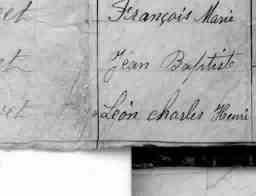 et François Marie
et Jean Baptiste
et Léon Charles Henri